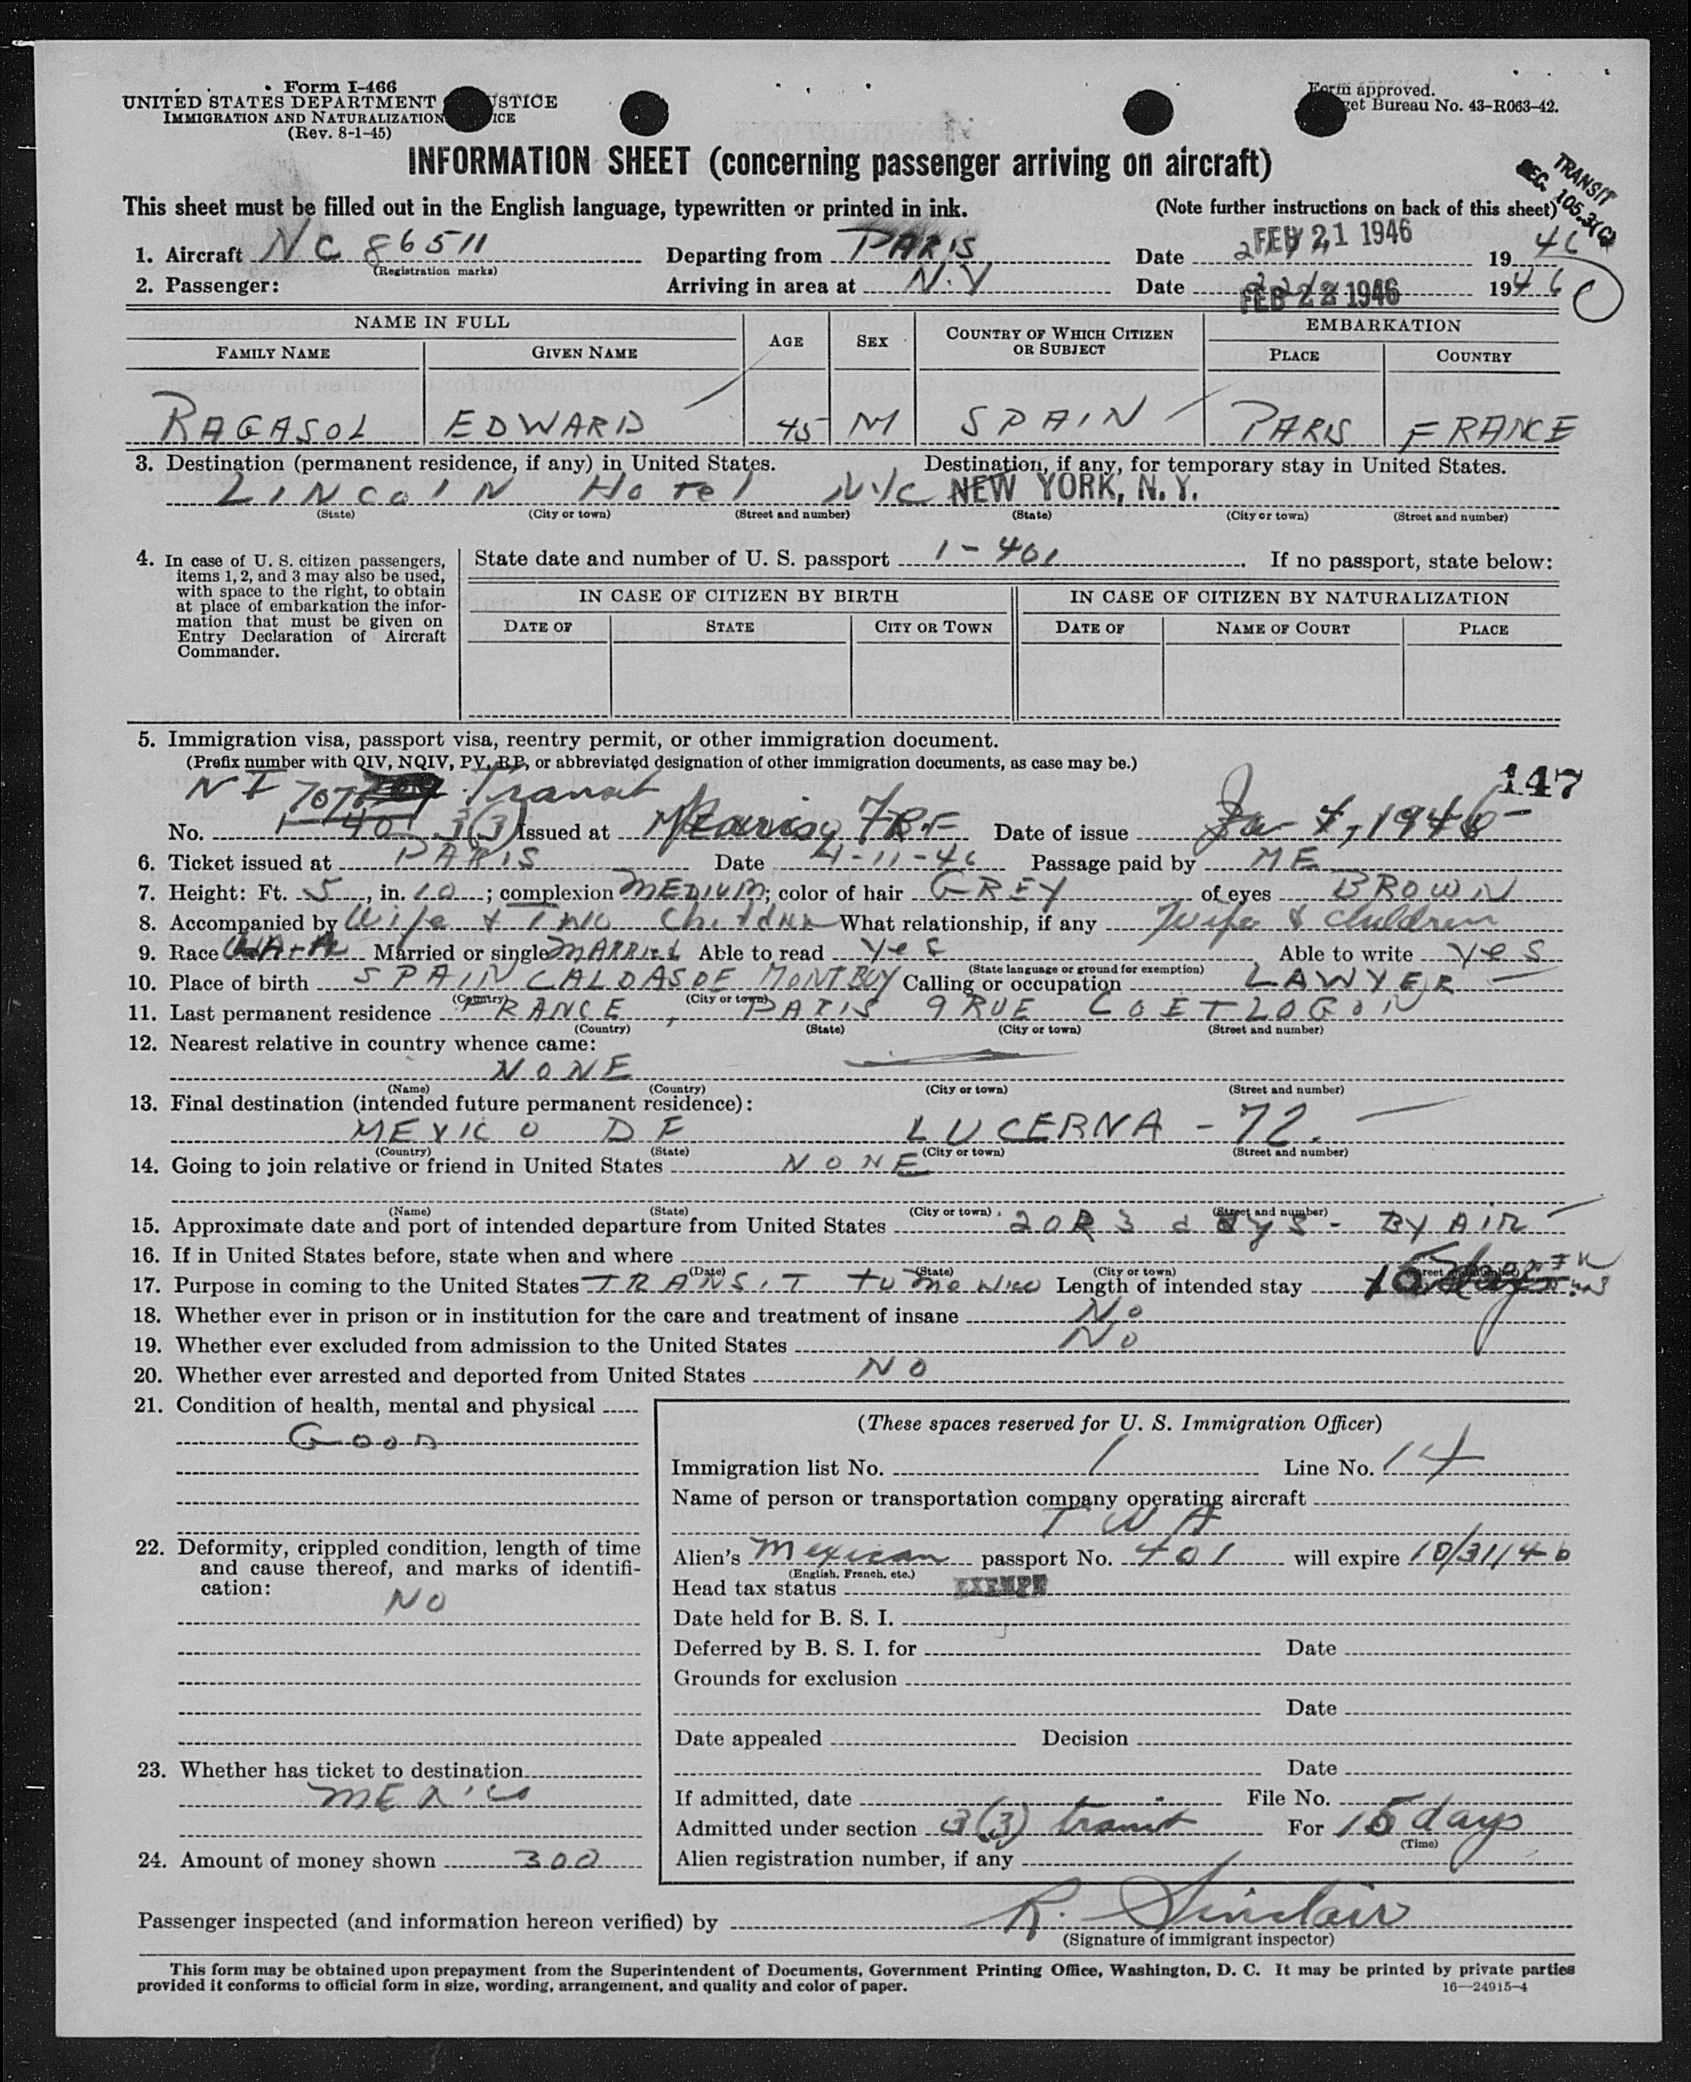 Form I-466
UNITED STATES DEPARTMENT STICE
IMMIGRATION AND NATURALIZATION ICE
(Rev. 8-1-45)
Form approved.
get Bureau No. 43-R063-42.
INFORMATION SHEET (concerning passenger arriving on aircraft)
TRANSIT
SEC. 105.3(C)
This sheet must be filled out in the English language, typewritten or printed in ink. (Note further instructions on back of this sheet)
1. Aircraft NC 86511 Departing from PARIS Date FEB 21 1946 1946
(Registration marks)
2. Passenger: Arriving in area at N.Y Date FEB 22 1946 1946
NAME IN FULL AGE SEX COUNTRY OF WHICH CITIZEN OR SUBJECT EMBARKATION
FAMILY NAME GIVEN NAME PLACE COUNTRY
RAGASOL EDWARD 45 M SPAIN PARIS FRANCE
3. Destination (permanent residence, if any) in United States. Destination, if any, for temporary stay in United States.
LINCOLN HOTEL NYC NEW YORK, N. Y.
(State) (City or town) (Street and number) (State) (City or town) (Street and number)
4. In case of U. S. citizen passengers, items 1, 2, and 3 may also be used, with space to the right, to obtain at place of embarkation the information that must be given on Entry Declaration of Aircraft Commander.
State date and number of U. S. passport 1-401. If no passport, state below:
IN CASE OF CITIZEN BY BIRTH IN CASE OF CITIZEN BY NATURALIZATION
DATE OF STATE CITY OR TOWN DATE OF NAME OF COURT PLACE
5. Immigration visa, passport visa, reentry permit, or other immigration document.
(Prefix number with QIV, NQIV, PV, RP, or abbreviated designation of other immigration documents, as case may be.)
147
NI 707 Transit
No. 1 401 3(3) Issued at Paris Date of issue Jan 4, 1946
6. Ticket issued at PARIS Date -11-46 Passage paid by ME
7. Height: Ft. 5, in. 10; complexion MEDIUM; color of hair GREY of eyes BROWN
8. Accompanied by Wife & Two Children What relationship, if any Wife & Children
9. Race Married or single MARRIED Able to read Yes Able to write Yes
(State language or ground for exemption)
10. Place of birth SPAIN CALDAS DE MONTBUY Calling or occupation LAWYER
(Country) (City or town)
11. Last permanent residence FRANCE, PARIS 9 RUE COETLOGON
(Country) (State) (City or town) (Street and number)
12. Nearest relative in country whence came:
NONE
(Name) (Country) (City or town) (Street and number)
13. Final destination (intended future permanent residence):
MEXICO DF LUCERNA - 72.
(Country) (State) (City or town) (Street and number)
14. Going to join relative or friend in United States NONE
(Name) (State) (City or town) (Street and number)
15. Approximate date and port of intended departure from United States 2 OR 3 days - BY AIR
16. If in United States before, state when and where
(Date) (State) (City or town)
17. Purpose in coming to the United States TRANSIT to Mexico Length of intended stay 15 days
18. Whether ever in prison or in institution for the care and treatment of insane No
19. Whether ever excluded from admission to the United States No
20. Whether ever arrested and deported from United States NO
21. Condition of health, mental and physical
GOOD
22. Deformity, crippled condition, length of time and cause thereof, and marks of identification:
NO
23. Whether has ticket to destination
MEXICO
24. Amount of money shown 300
(These spaces reserved for U. S. Immigration Officer)
Immigration list No. 1 Line No. 14
Name of person or transportation company operating aircraft
TWA
Alien's Mexican passport No. 401 will expire 10/31/46
(English, French, etc.)
Head tax status EXEMPT
Date held for B. S. I.
Deferred by B. S. I. for Date
Grounds for exclusion
Date
Date appealed Decision
Date
If admitted, date File No.
Admitted under section 3(3) transit For 15 days
(Time)
Alien registration number, if any
Passenger inspected (and information hereon verified) by R. Sinclair
(Signature of immigrant inspector)
This form may be obtained upon prepayment from the Superintendent of Documents, Government Printing Office, Washington, D. C. It may be printed by private parties
provided it conforms to official form in size, wording, arrangement, and quality and color of paper. 16—24915-4